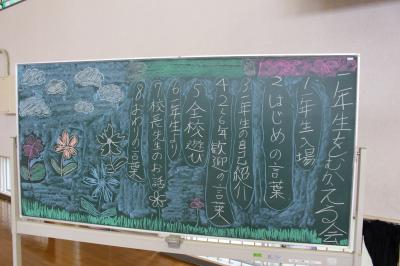 一年生をむかえる会
1 一年生入場
2 はじめの言葉
3 一年生の自己紹介
4 2~6年歓迎の言葉
5 全校遊び
6 一年生より
7 校長先生のお話
8 おわりの言葉